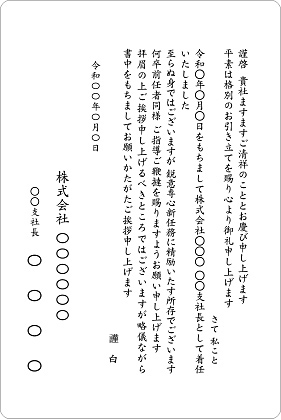 謹啓 貴社ますますご清祥のこととお慶び申し上げます
平素は格別のお引き立てを賜り心より御礼申し上げます
さて 私こと
令和〇年〇月〇日をもちまして株式会社〇〇〇 〇〇支社長として着任
いたしました
至らぬ身ではございますが 鋭意専心新任務に精励いたす所存でございます
何卒前任者同様 ご指導ご鞭撻を賜りますようお願い申し上げます
拝眉の上ご挨拶申し上げるべきところではございますが略儀ながら
書中をもちましてお願いかたがたご挨拶申し上げます
謹 白
令和〇〇年〇月〇日
株式会社 〇〇〇〇〇〇
〇〇支社長 〇 〇 〇 〇